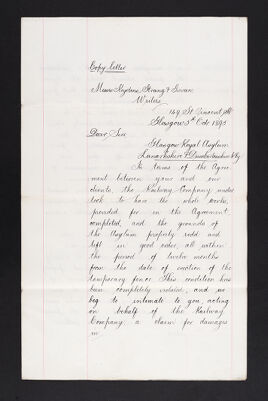 Copy Letter
Messrs Keydens, Strang & Girvan
Writers
149 St Vincent St
Glasgow 5th Oct 1893
Dear Sirs
Glasgow Royal Asylum
Lanarkshire & Dumbartonshire Rly
In terms of the Agree
ment between yours and our
clients, the Railway Company under
took to have the whole works,
provided for in the Agreement
completed, and the grounds of
the Asylum properly soiled and
left in good order, all within
the period of twelve months
from the date of erection of the
temporary fence. This condition has
been completely violated, and we
beg to intimate to you, acting
on behalf of the Railway
Company, a claim for damages
in